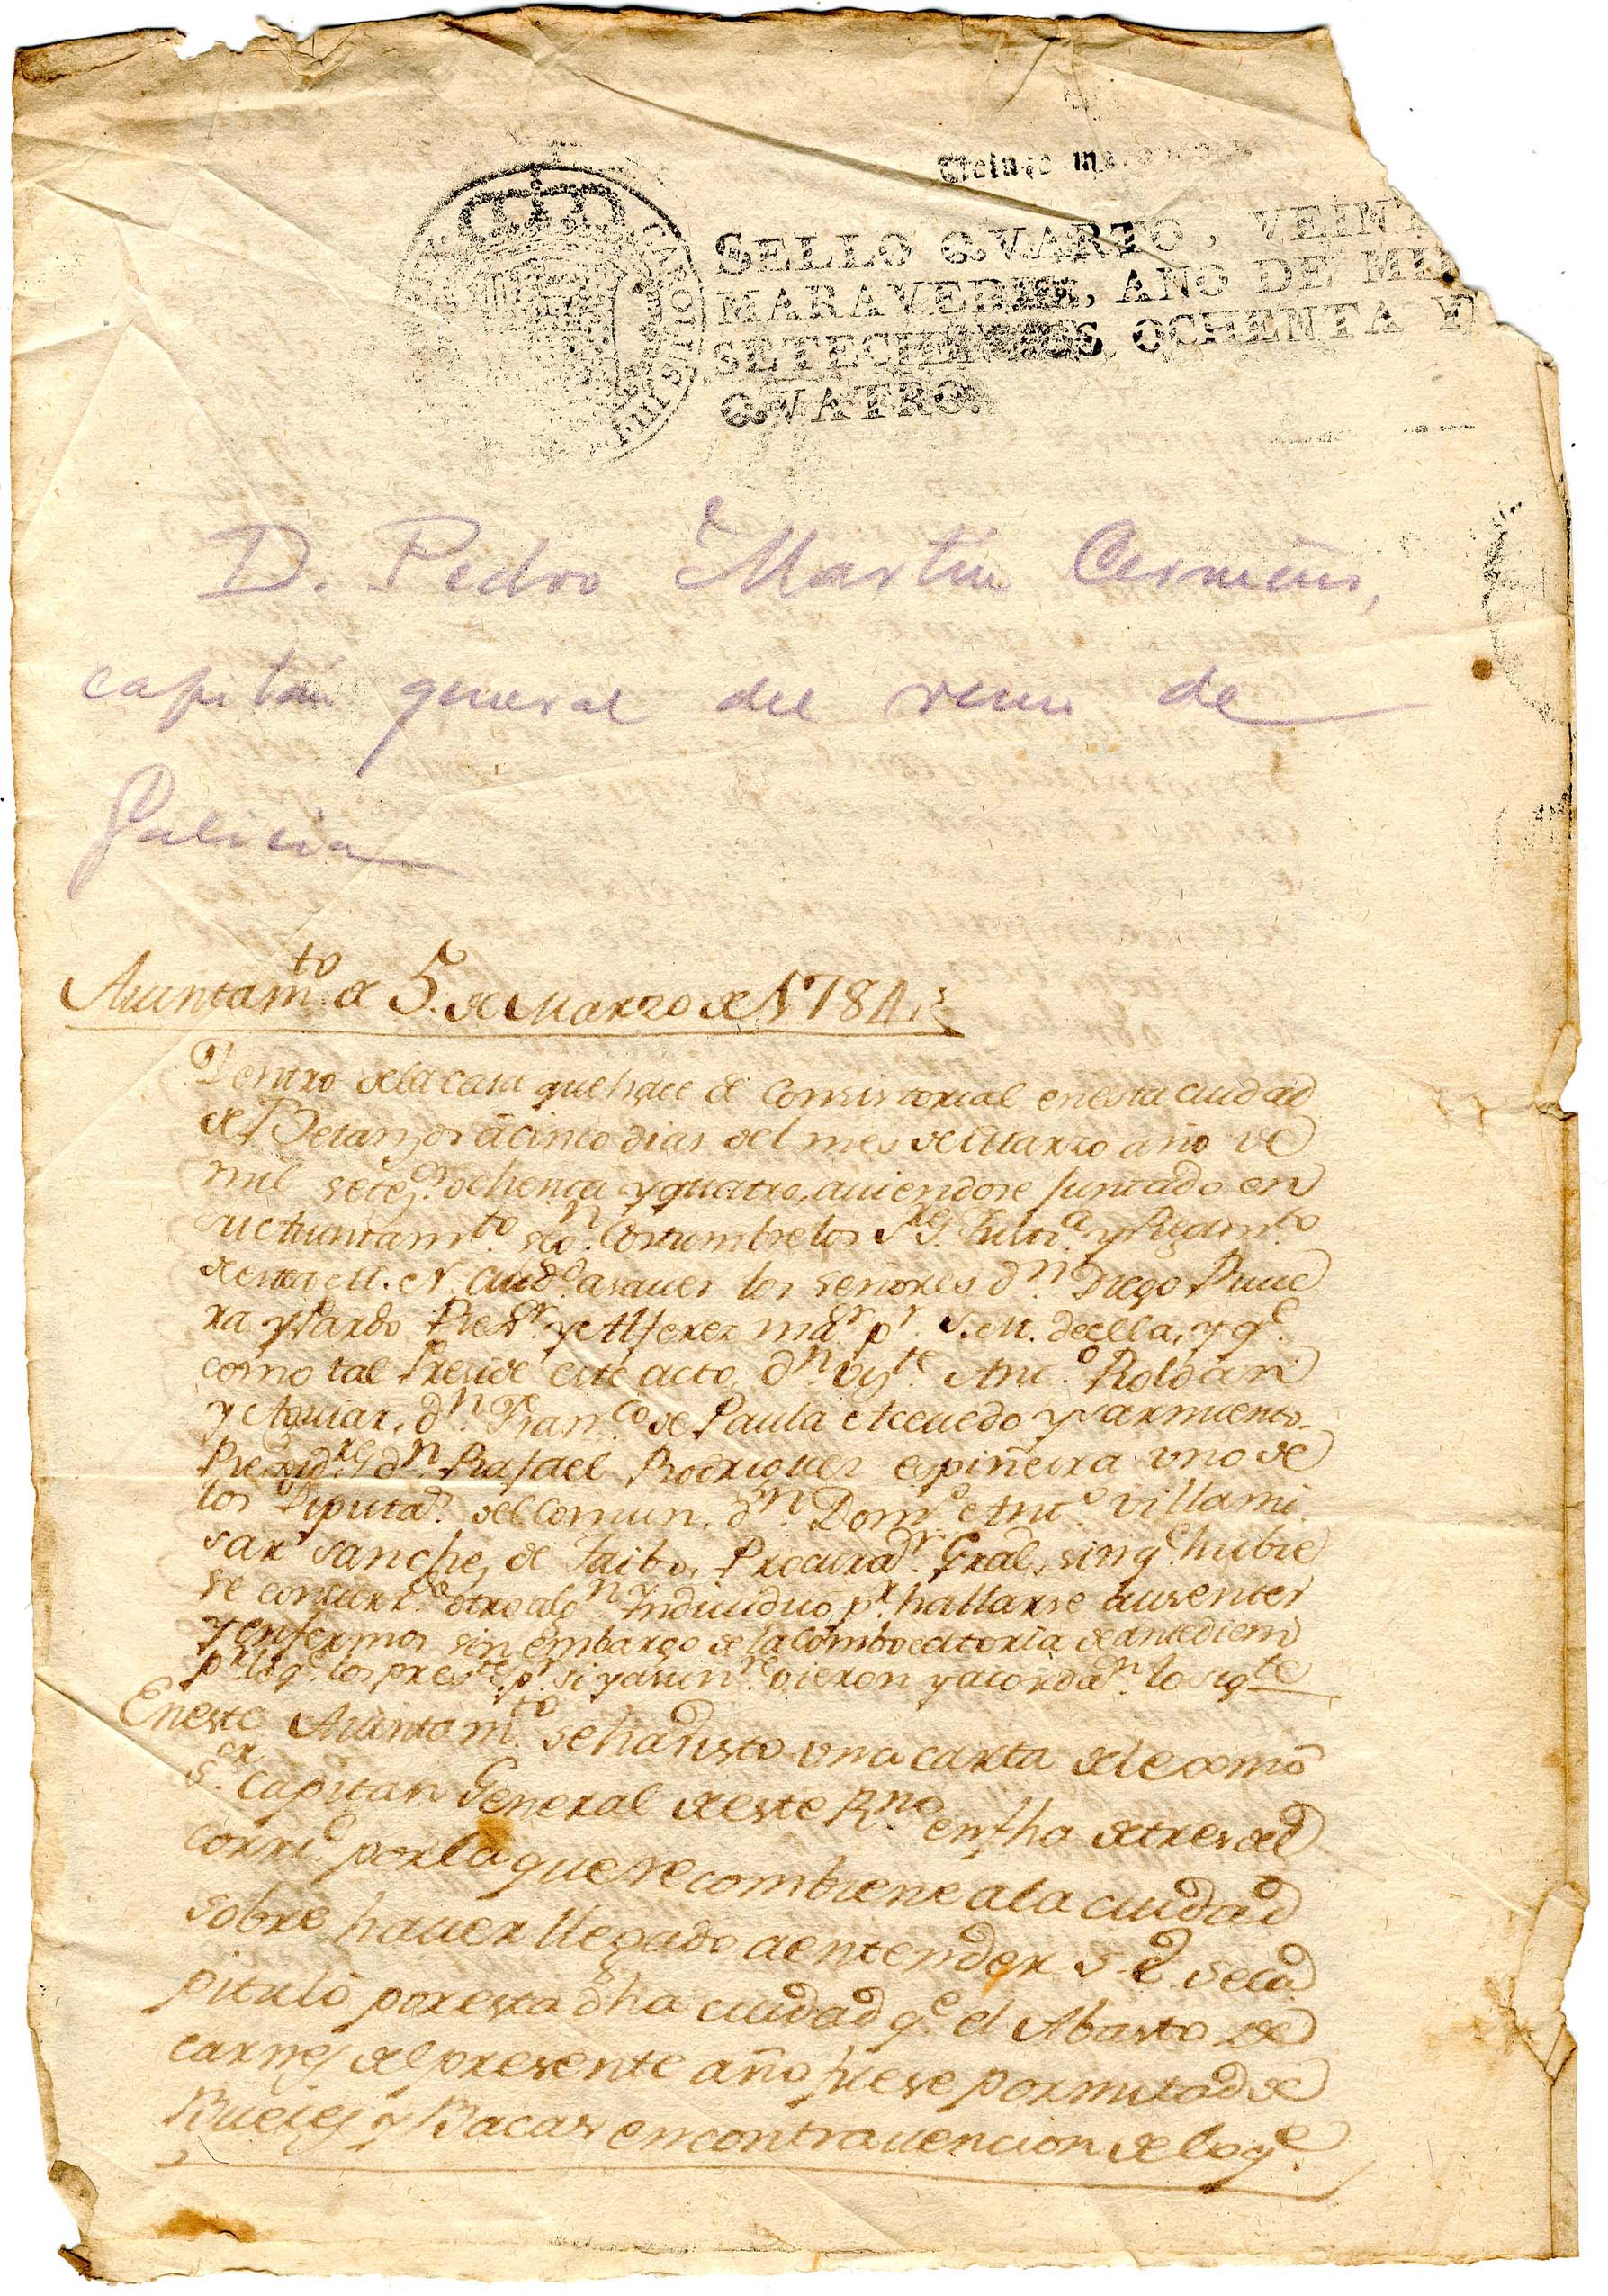 SELLO QVARTO, VEINT
MARAVEDIS, AÑO DE MIL
SETECIENTOS OCHENTA Y
QVATRO.
D. Pedro Martín Cermeño,
capitán general del reino de
Galicia
Aiuntamto. de 5. de Marzo de 1784
Dentro dela casa que hace de Consistorial enesta ciudad
de Betanzos a cinco dias del mes de Marzo año de
mil setezs. ochenta y quatro, auiendose juntado en
su Aiuntamto. segn. Costumbre los Sres. Justia. y Regimto.
de esta M. N. Ciud. asauer los señores dn. Diego Piñei
ra y Pardo Rexor. y Alferez mar. pr. S. M. de ella, y qe.
como tal Preside este acto, dn. Vizte. Anto. Roldan
y Aguiar, dn. Franco. de Paula Aceuedo y Sarmiento
Regidres. dn. Rafael Rodriguez espiñeira vno de
los Diputads. del Comun, dn. Domo. Anto. Villami
sar Sanchez de Taibo, Procuradr. Gral, sin qe. hubie
se concurrdo. otro algn. Indiuiduo, pr. hallarse Ausentes
y enfermos sin embargo de la Combocatoria de antediem
pr. lo qe. los prestes. pr. si y ausenes. vieron y acordan. lo sigte.
Eneste Aiuntamto. se ha visto vna carta del excmo
Sor. Capitan General de este Rno. en fha de tres del
corrte. por la que se combiene a la ciudad
sobre hauer llegado a entender S. E. se ca
pituló por esta dha ciudad qe. el Abasto de
carnes del presente año fuese por mitad de
Bueies y Bacas en contrauencion de lo qe.